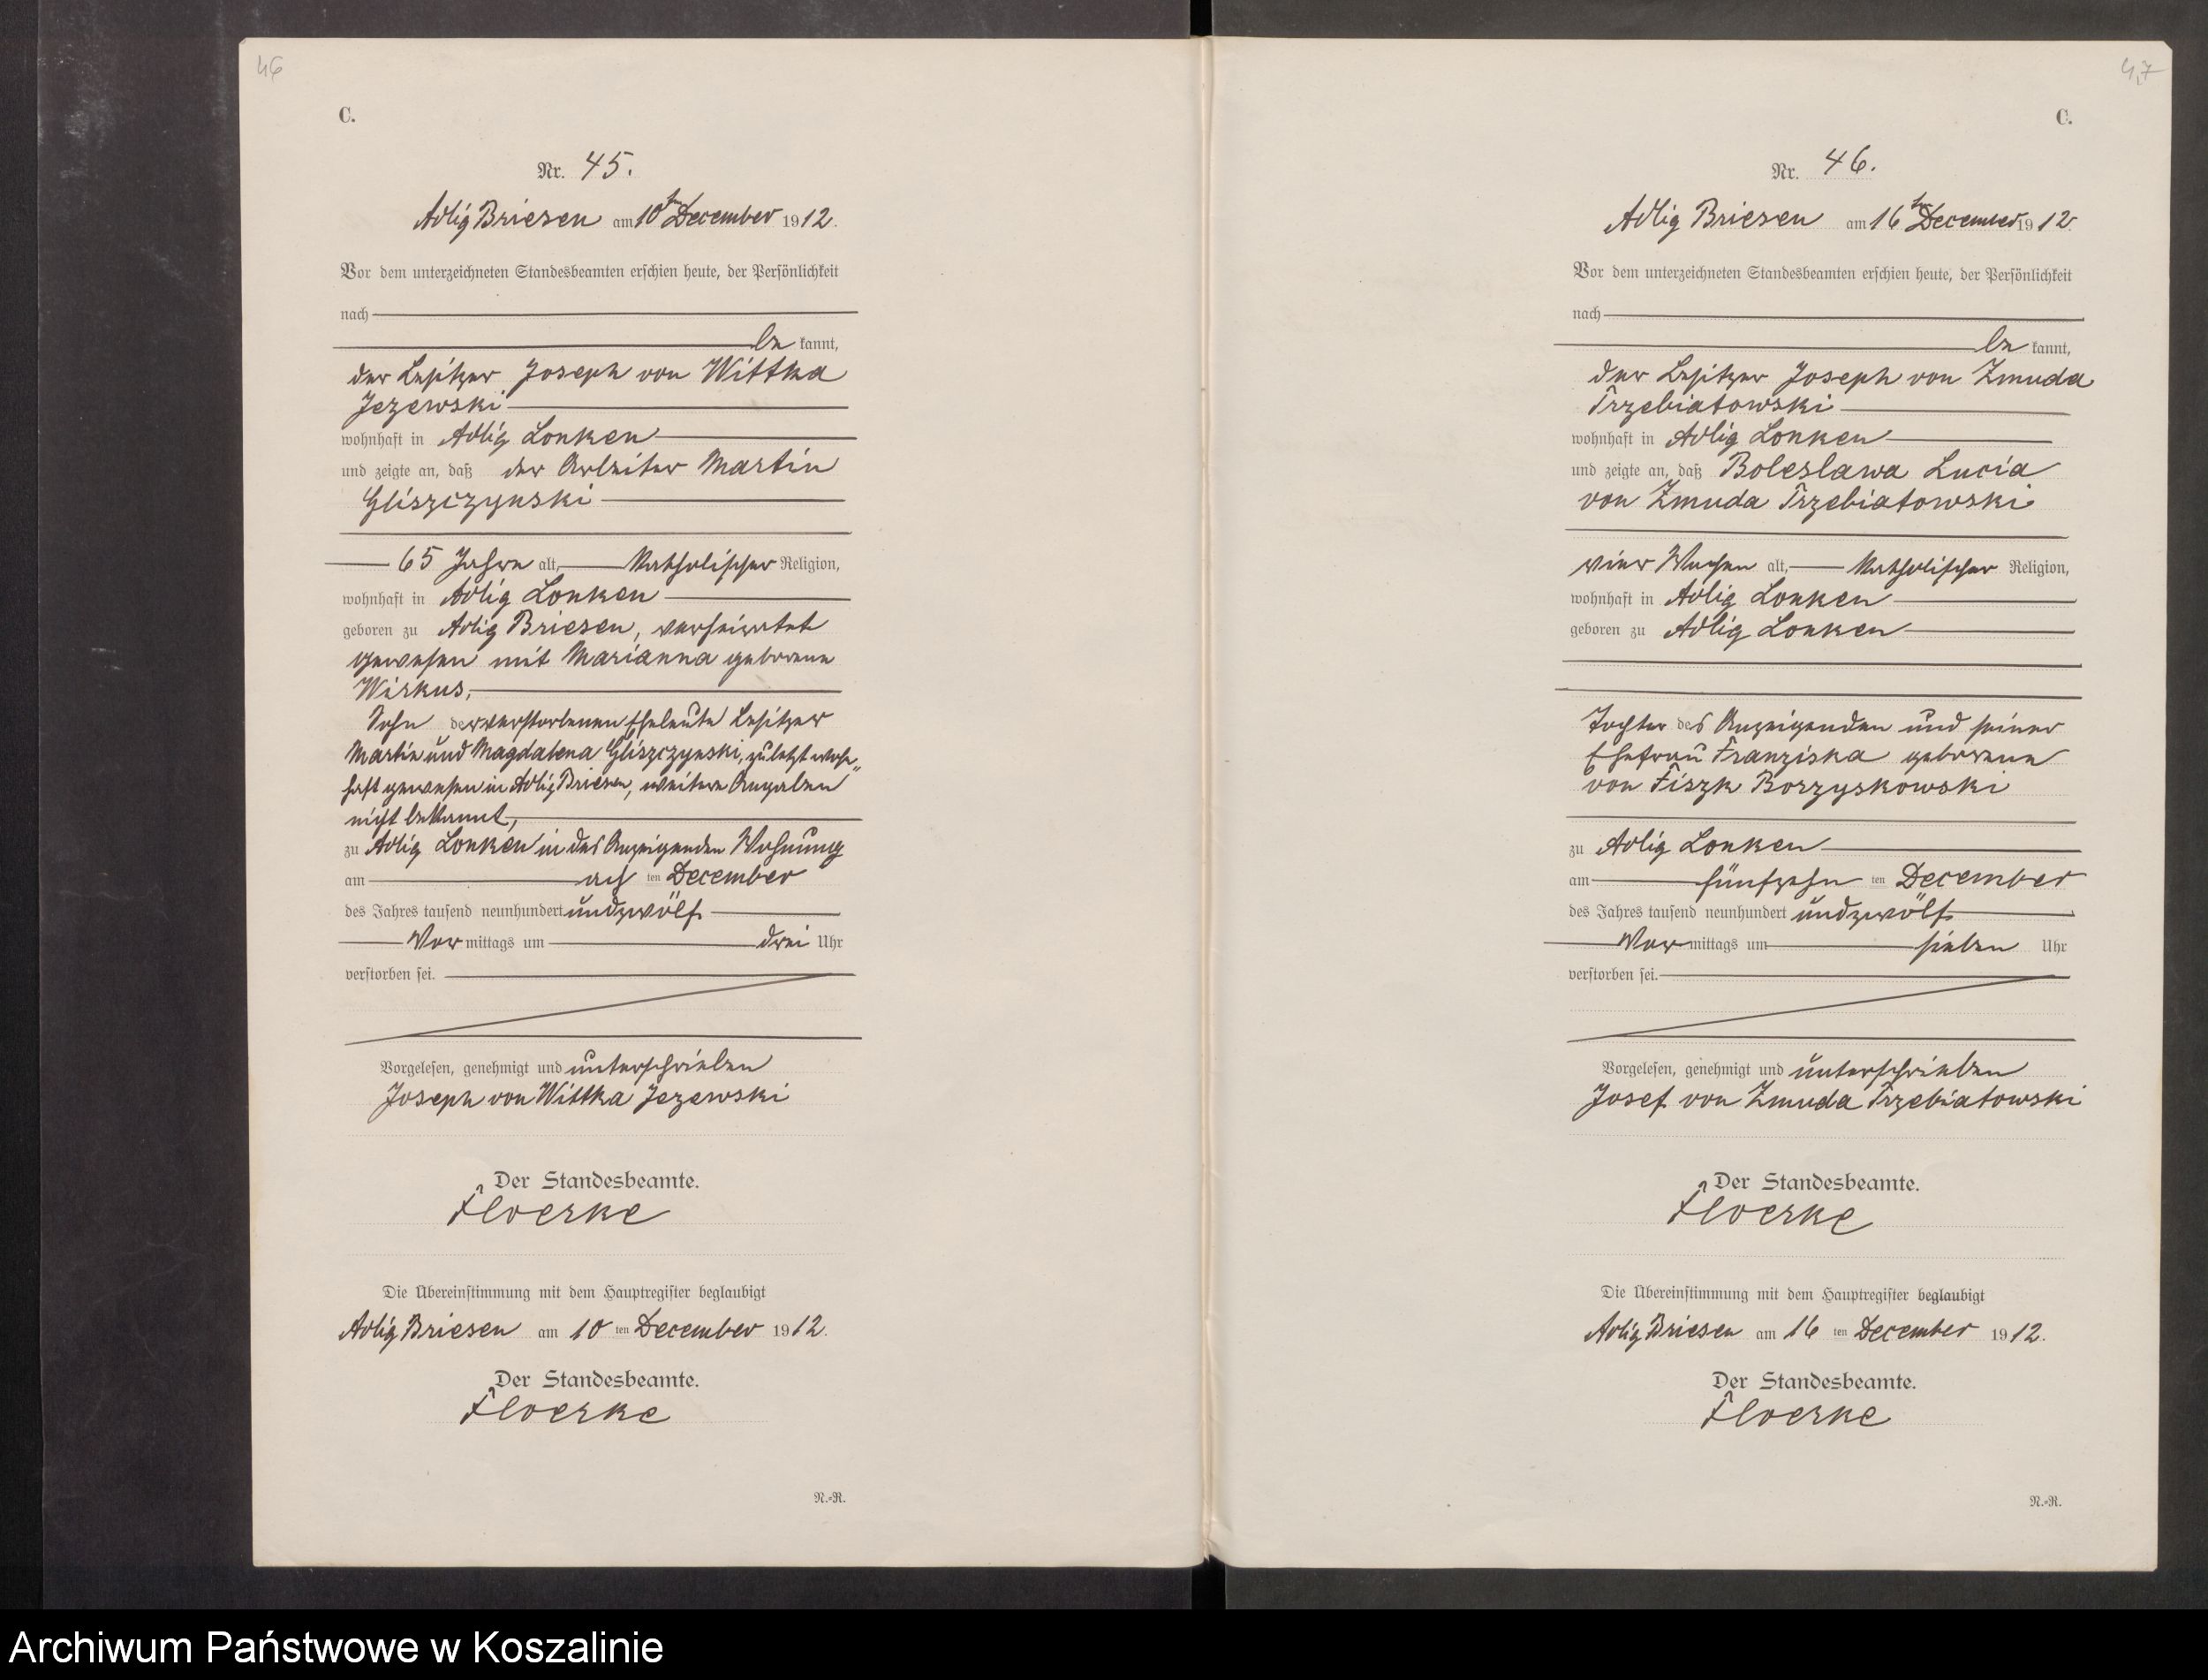 46
C.
Nr. 45.
Adlig Briesen am 10ten December 1912.
Vor dem unterzeichneten Standesbeamten erschien heute, der Persönlichkeit
nach
be kannt,
der Besitzer Joseph von Wittka
Jezewski
wohnhaft in Adlig Lonken
und zeigte an, daß der Arbeiter Martin
Gliszczynski
65 Jahre alt, katholischer Religion,
wohnhaft in Adlig Lonken
geboren zu Adlig Briesen, verheiratet
gewesen mit Marianna geborene
Wirkus,
Sohn der verstorbenen Eheleute Besitzer
Martin und Magdalena Gliszczynski, zuletzt wohn„
haft gewesen in Adlig Briesen, weitere Angaben
nicht bekannt,
zu Adlig Lonken in des Anzeigenden Wohnung
am ach ten December
des Jahres tausend neunhundert undzwölf
Vor mittags um drei Uhr
verstorben sei.
Vorgelesen, genehmigt und unterschrieben
Joseph von Wittka Jezewski
Der Standesbeamte.
Floerke
Die Übereinstimmung mit dem Hauptregister beglaubigt
Adlig Briesen am 10 ten December 1912.
Der Standesbeamte.
Floerke
N.-R.
47
C.
Nr. 46.
Adlig Briesen am 16ten December 1912.
Vor dem unterzeichneten Standesbeamten erschien heute, der Persönlichkeit
nach
be kannt,
der Besitzer Joseph von Zmuda
Trzebiatowski
wohnhaft in Adlig Lonken
und zeigte an, daß Boleslawa Lucia
von Zmuda Trzebiatowski
vier Wochen alt, katholischer Religion,
wohnhaft in Adlig Lonken
geboren zu Adlig Lonken
Tochter des Anzeigenden und seiner
Ehefrau Franziska geborene
von Fiszk Borzyskowski
zu Adlig Lonken
am fünfzehn ten December
des Jahres tausend neunhundert undzwölf
Vor mittags um sieben Uhr
verstorben sei.
Vorgelesen, genehmigt und unterschrieben
Josef von Zmuda Trzebiatowski
Der Standesbeamte.
Floerke
Die Übereinstimmung mit dem Hauptregister beglaubigt
Adlig Briesen am 16 ten December 1912.
Der Standesbeamte.
Floerke
N.-R.
Archiwum Państwowe w Koszalinie